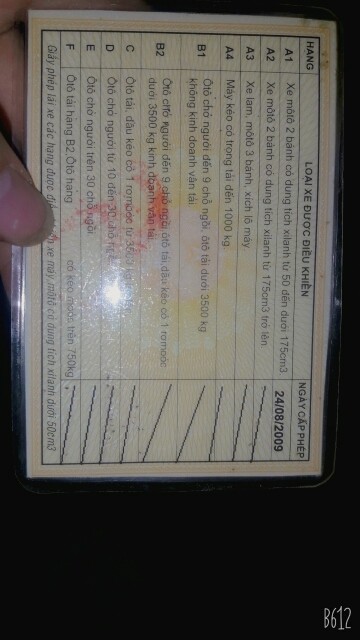 HẠNG LOẠI XE ĐƯỢC ĐIỀU KHIỂN NGÀY CẤP PHÉP
A1 Xe môtô 2 bánh có dung tích xilanh từ 50 đến dưới 175cm3 24/08/2009
A2 Xe môtô 2 bánh có dung tích xilanh từ 175cm3 trở lên
A3 Xe lam, môtô 3 bánh, xích lô máy
A4 Máy kéo có trọng tải đến 1000 kg
B1 Ôtô chở người đến 9 chỗ ngồi, ôtô tải dưới 3500 kg
không kinh doanh vận tải
B2 Ôtô chở người đến 9 chỗ ngồi, ôtô tải, đầu kéo có 1 rơmoóc
dưới 3500 kg kinh doanh vận tải
C Ôtô tải, đầu kéo có 1 rơmoóc từ
D Ôtô chở người từ 10 đến
E Ôtô chở người trên 30 chỗ ngồi
F Ôtô tải hạng B2, Ôtô hạng có kéo moóc trên 750kg
Giấy phép lái xe các hạng được xe máy, môtô có dung tích xilanh dưới 50cm3
B612